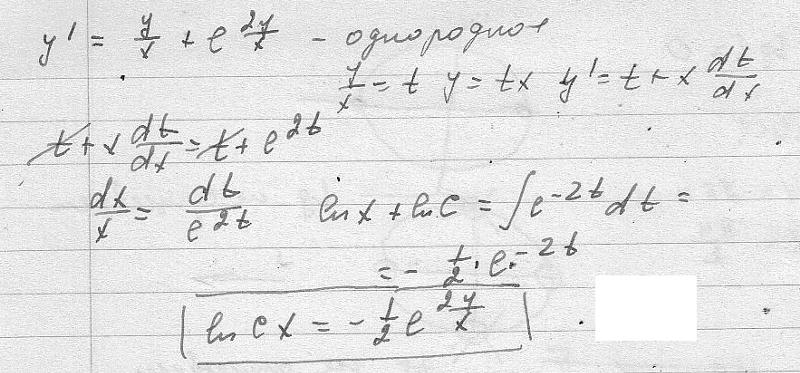 y' = y/x + e^(2y/x) - однородное
y/x = t y = tx y' = t + x dt/dx
t + x dt/dx = t + e^(2t)
dx/x = dt/e^(2t) ln x + ln c = ∫ e^(-2t) dt =
= - 1/2 · e^(-2t)
ln cx = - 1/2 e^(2y/x)